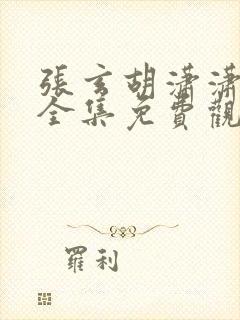 張玄胡瀟瀟
全集免費觀
羅利